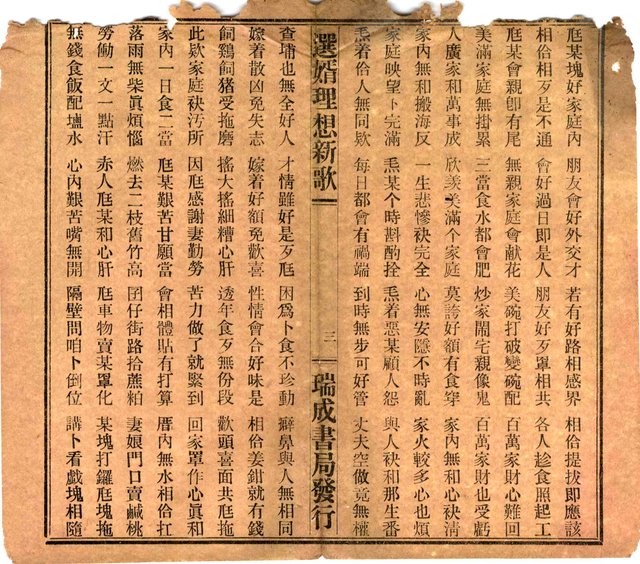 尪某塊好家庭內 朋友會好外交才 若有好路相感界 相佮提拔即應該
相佮相歹是不通 會好過日即是人 朋友好歹罩相共 各人趁食照起工
尪某會親卽有尾 無親家庭會献花 美碗打破變碗配 百萬家財心難回
美滿家庭無掛累 三當食水都會肥 炒家鬧宅親像鬼 百萬家財也受虧
人廣家和萬事成 欣羨美滿个家庭 莫誇好額有食穿 家內無和心袂清
家內無和搬海反 一生悲慘袂完全 心無安隱不時亂 家火較多心也煩
家庭映望卜完滿 𤆬某个時斟酌拴 𤆬着惡某顧人怨 與人袂和那生番
𤆬着佮人無同欵 每日都會有禍端 到時無步可好管 丈夫空做竟無權
選婿理想新歌 三 瑞成書局發行
查埔也無全好人 才情雖好是歹尪 因爲卜食不珍動 癖鼻與人無相同
嫁着散凶免失志 嫁着好額免歡喜 性情會合好味是 相佮姜鉗就有錢
飼鷄飼猪受拖磨 搖大搖細糟心肝 透年食歹無份段 歡頭喜面共尪拖
此欵家庭袂汚所 因尪感謝妻勤勞 苦力做了就緊到 回家罩作心眞和
家內一日食二當 尪某艱苦甘願當 會相體貼有打算 厝內無水相佮扛
落雨無柴眞煩惱 燃去二枝舊竹高 囝仔街路拾蔗粕 妻娘門口賣鹹桃
勞働一文一點汗 赤人尪某和心肝 尪車物賣某罩化 某塊打鑼尪塊拖
無錢食飯配塩水 心內艱苦嘴無開 隔壁問咱卜倒位 講卜看戲塊相隨